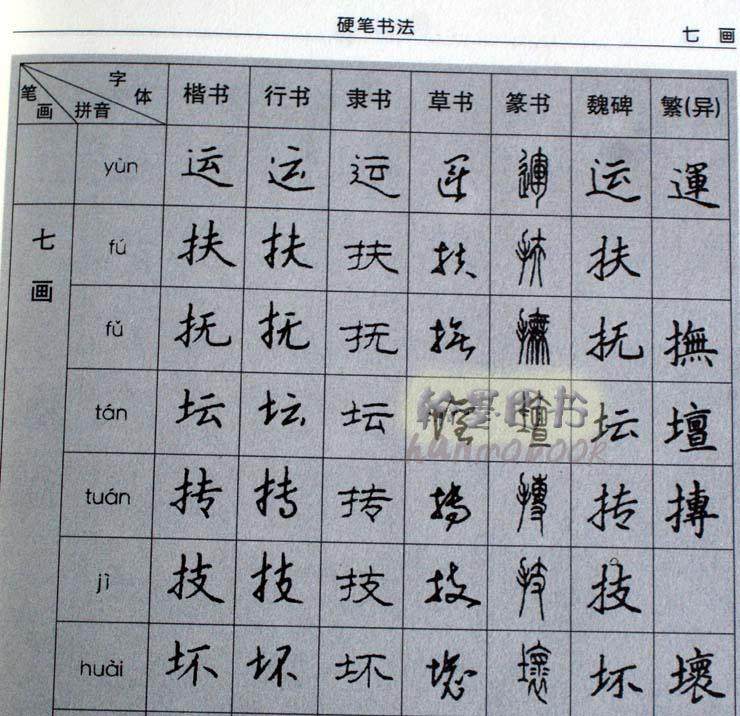 硬笔书法
七 画
笔画 字体 拼音 楷书 行书 隶书 草书 篆书 魏碑 繁(异)
yùn 运 运 运 运 運 运 運
七画
fú 扶 扶 扶 扶 扶 扶
fǔ 抚 抚 抚 撫 撫 抚 撫
tán 坛 坛 坛 壇 壇 坛 壇
翰墨图书
hanmobook
tuán 抟 抟 抟 摶 摶 抟 摶
jì 技 技 技 技 技 技
huài 坏 坏 坏 壞 壞 坏 壞